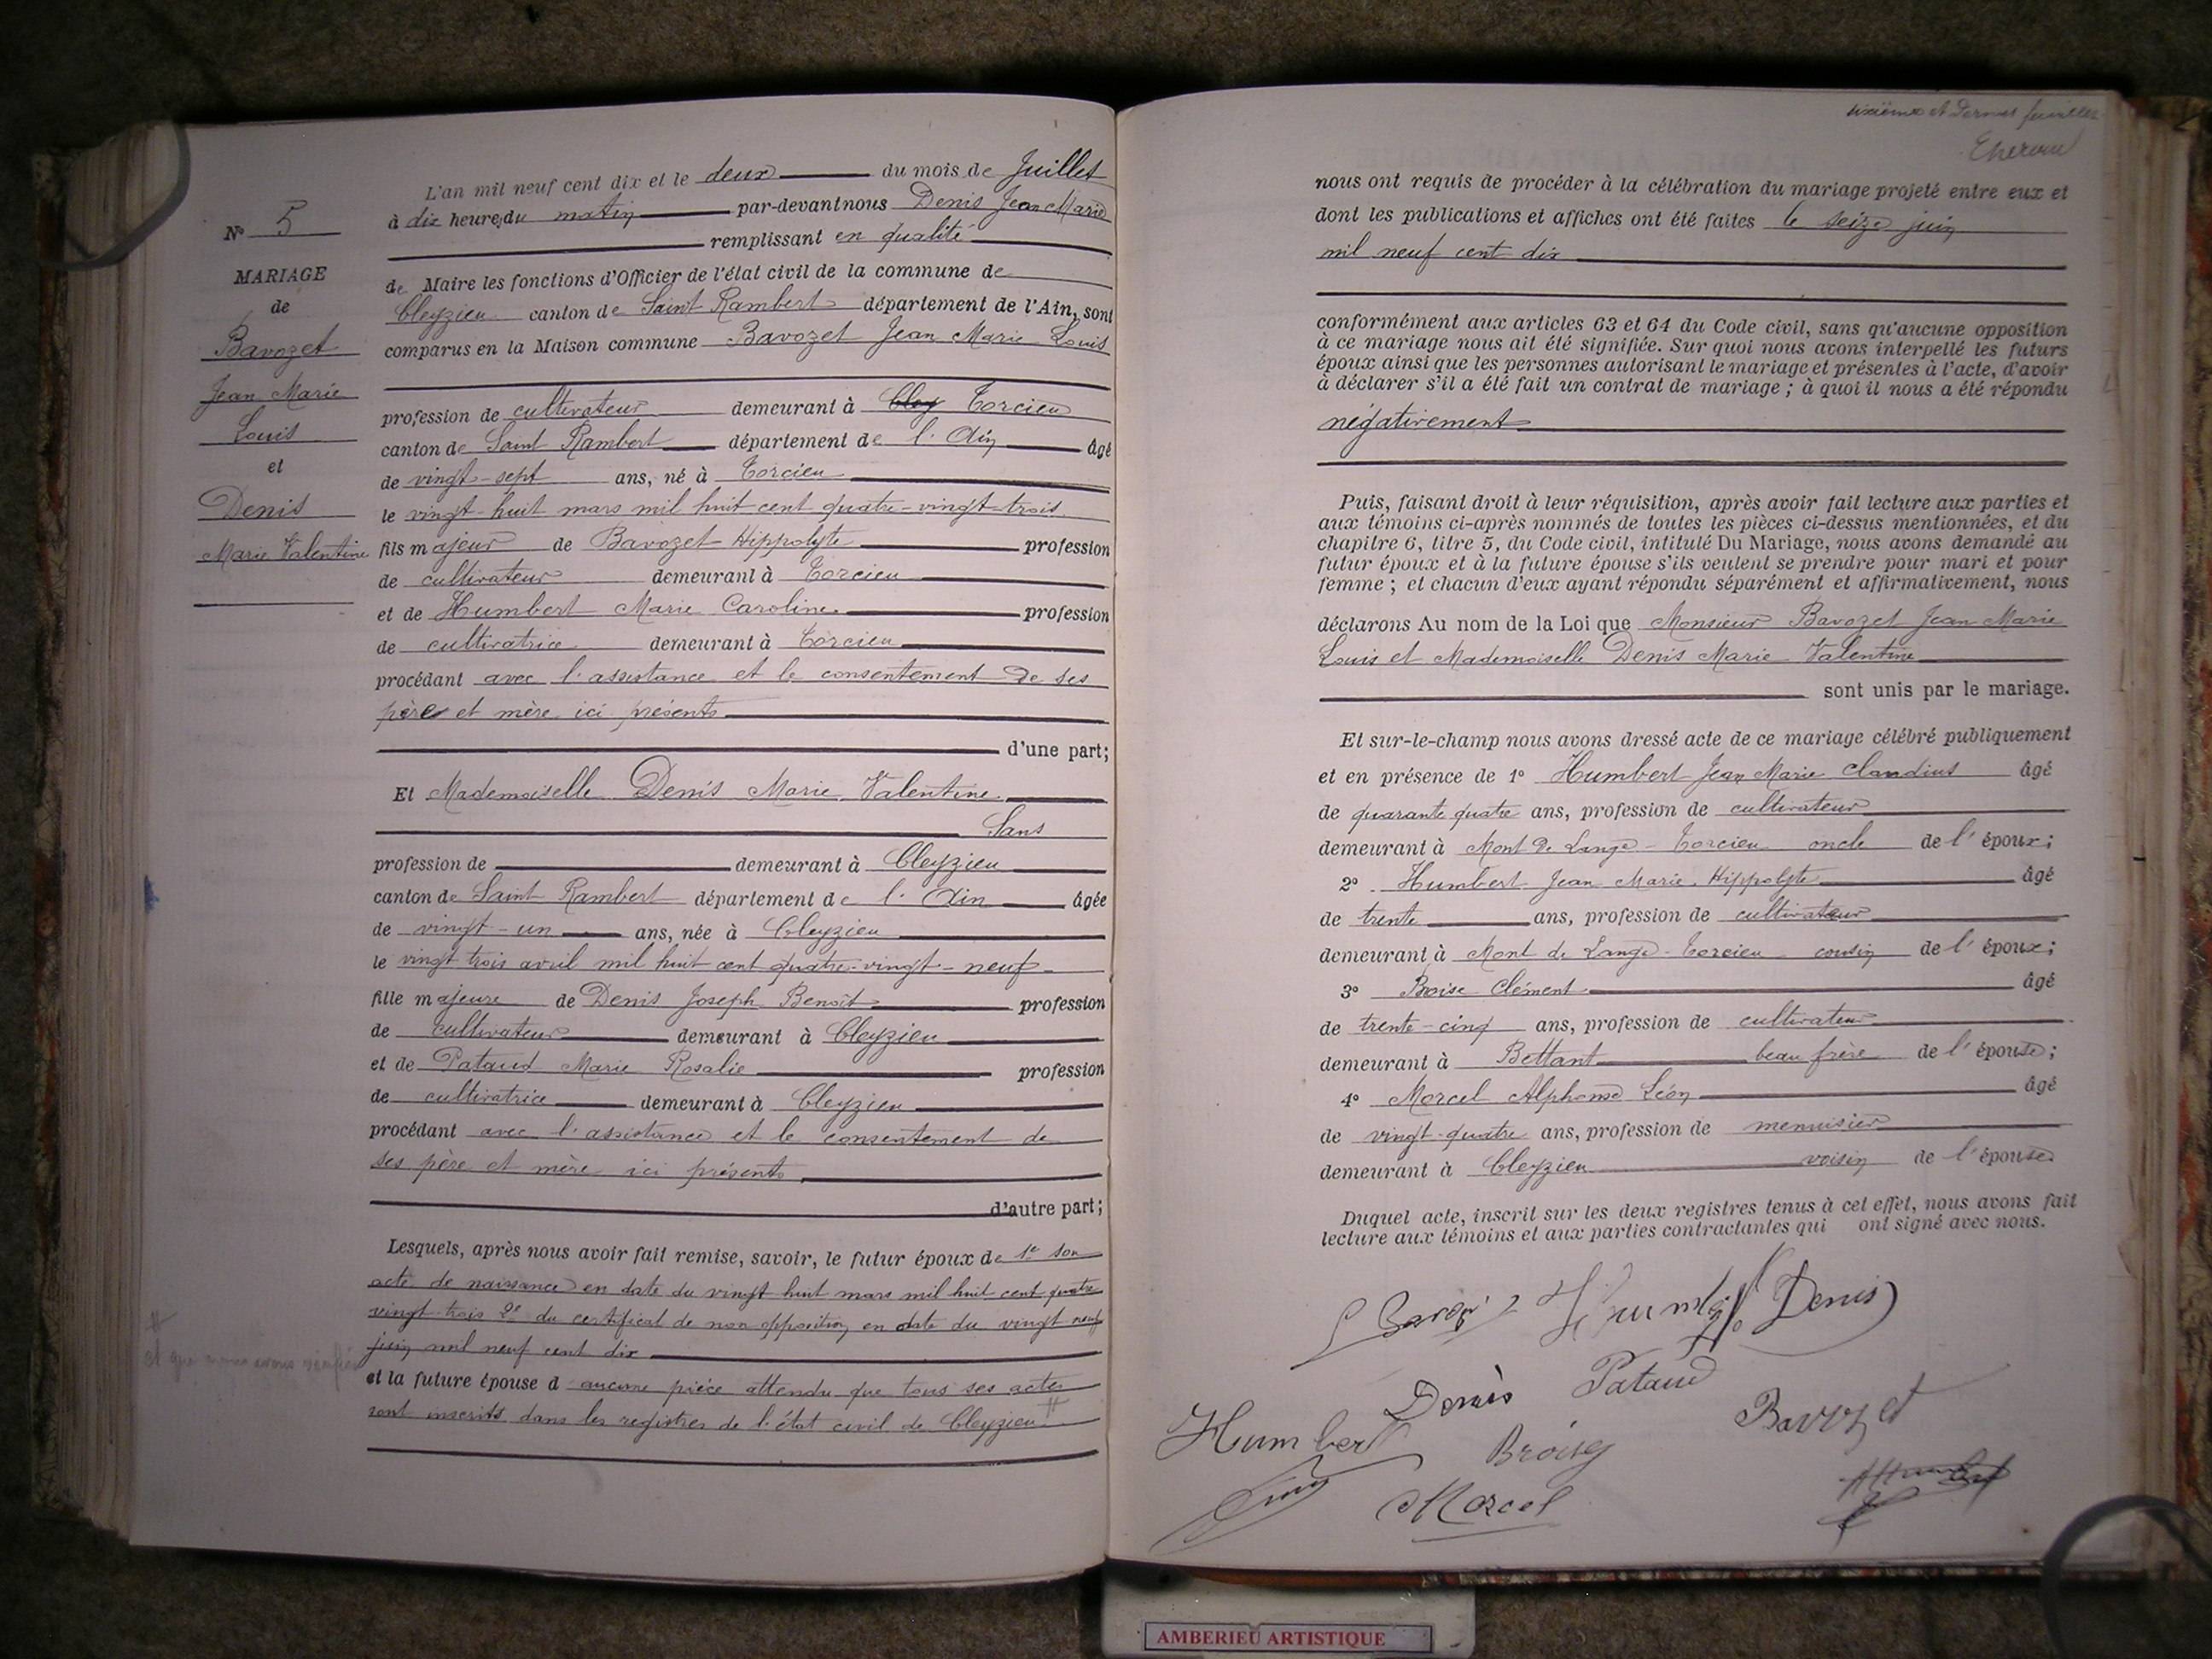 N° 5
MARIAGE
de
Bavozet
Jean Marie
Louis
et
Denis
Marie Valentine
L'an mil neuf cent dix et le deux du mois de Juillet
à dix heures du matin par-devant nous Denis Jean Marie
remplissant en qualité
de Maire les fonctions d'Officier de l'état civil de la commune de
Cleyzieu canton de Saint Rambert département de l'Ain, sont
comparus en la Maison commune Bavozet Jean Marie Louis
profession de cultivateur demeurant à Cley Torcieu
canton de Saint Rambert département de l'Ain âgé
de vingt-sept ans, né à Torcieu
le vingt-huit mars mil huit cent quatre-vingt-trois
fils majeur de Bavozet Hippolyte profession
de cultivateur demeurant à Torcieu
et de Humbert Marie Caroline profession
de cultivatrice demeurant à Torcieu
procédant avec l'assistance et le consentement de ses
père et mère ici présents
d'une part;
Et Mademoiselle Denis Marie Valentine
Sans
profession de demeurant à Cleyzieu
canton de Saint Rambert département de l'Ain âgée
de vingt-un ans, née à Cleyzieu
le vingt trois avril mil huit cent quatre-vingt-neuf
fille majeure de Denis Joseph Benoît profession
de cultivateur demeurant à Cleyzieu
et de Pataud Marie Rosalie profession
de cultivatrice demeurant à Cleyzieu
procédant avec l'assistance et le consentement de
ses père et mère ici présents
d'autre part;
Lesquels, après nous avoir fait remise, savoir, le futur époux de 1° son
acte de naissance en date du vingt huit mars mil huit cent quatre
vingt-trois 2° du certificat de non opposition en date du vingt neuf
juin mil neuf cent dix
et la future épouse d aucune pièce attendu que tous ses actes
sont inscrits dans les registres de l'état civil de Cleyzieu #
#
et que nous avons vérifié
sixième et dernier feuillet
nous ont requis de procéder à la célébration du mariage projeté entre eux et
dont les publications et affiches ont été faites le seize juin
mil neuf cent dix
conformément aux articles 63 et 64 du Code civil, sans qu'aucune opposition
à ce mariage nous ait été signifiée. Sur quoi nous avons interpellé les futurs
époux ainsi que les personnes autorisant le mariage et présentes à l'acte, d'avoir
à déclarer s'il a été fait un contrat de mariage ; à quoi il nous a été répondu
négativement
Puis, faisant droit à leur réquisition, après avoir fait lecture aux parties et
aux témoins ci-après nommés de toutes les pièces ci-dessus mentionnées, et du
chapitre 6, titre 5, du Code civil, intitulé Du Mariage, nous avons demandé au
futur époux et à la future épouse s'ils veulent se prendre pour mari et pour
femme ; et chacun d'eux ayant répondu séparément et affirmativement, nous
déclarons Au nom de la Loi que Monsieur Bavozet Jean Marie
Louis et Mademoiselle Denis Marie Valentine
sont unis par le mariage.
Et sur-le-champ nous avons dressé acte de ce mariage célébré publiquement
et en présence de 1° Humbert Jean Marie Claudius âgé
de quarante quatre ans, profession de cultivateur
demeurant à Mont de Lange - Torcieu oncle de l'époux;
2° Humbert Jean Marie Hippolyte âgé
de trente ans, profession de cultivateur
demeurant à Mont de Lange - Torcieu cousin de l'époux;
3° Broise Clément âgé
de trente-cinq ans, profession de cultivateur
demeurant à Bettant beau frère de l'épouse;
4° Morcel Alphonse Léon âgé
de vingt-quatre ans, profession de menuisier
demeurant à Cleyzieu voisin de l'épouse
Duquel acte, inscrit sur les deux registres tenus à cet effet, nous avons fait
lecture aux témoins et aux parties contractantes qui ont signé avec nous.
Denis
Denis Pataud
Humbert Bavozet
Morcel
AMBERIEU ARTISTIQUE